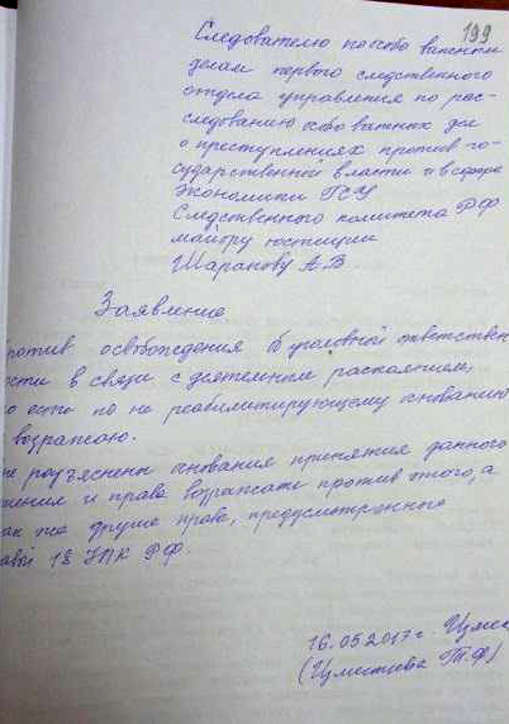 199
Следователю по особо важным
делам первого следственного
отдела управления по рас-
следованию особо важных дел
о преступлениях против го-
сударственной власти и в сфере
экономики ГСУ
Следственного комитета РФ
майору юстиции
Шарапову А.В.
Заявление
ротив освобождения от уголовной ответствен
ости в связи с деятельным раскаянием,
о есть по не реабилитирующему основанию
возражаю.
не разъяснены основания принятия данного
шения и право возражать против этого, а
ак же другие права, предусмотренные
авой 18 УПК РФ.
16.05.2017 г.
Т.Ф)